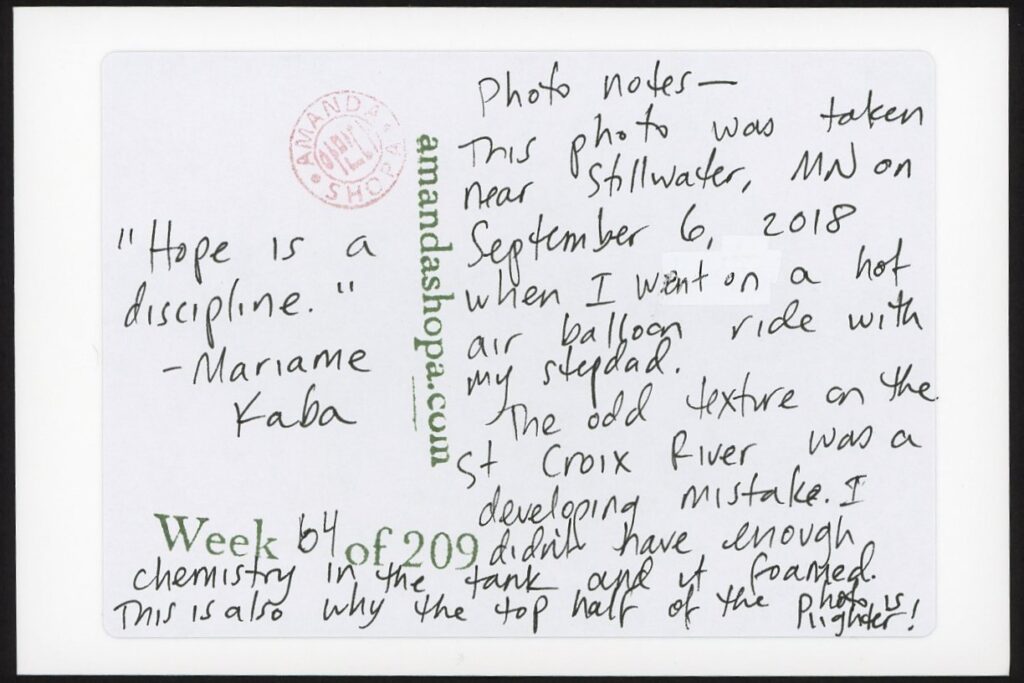 AMANDA
SHOPA
amandashopa.com
"Hope is a
discipline."
-Mariame
Kaba
Photo notes—
This photo was taken
near Stillwater, MN on
September 6, 2018
when I went on a hot
air balloon ride with
my stepdad.
The odd texture on the
St Croix River was a
developing mistake. I
didn't have enough
Week 64 of 209
chemistry in the tank and it foamed.
This is also why the top half of the photo is
lighter!